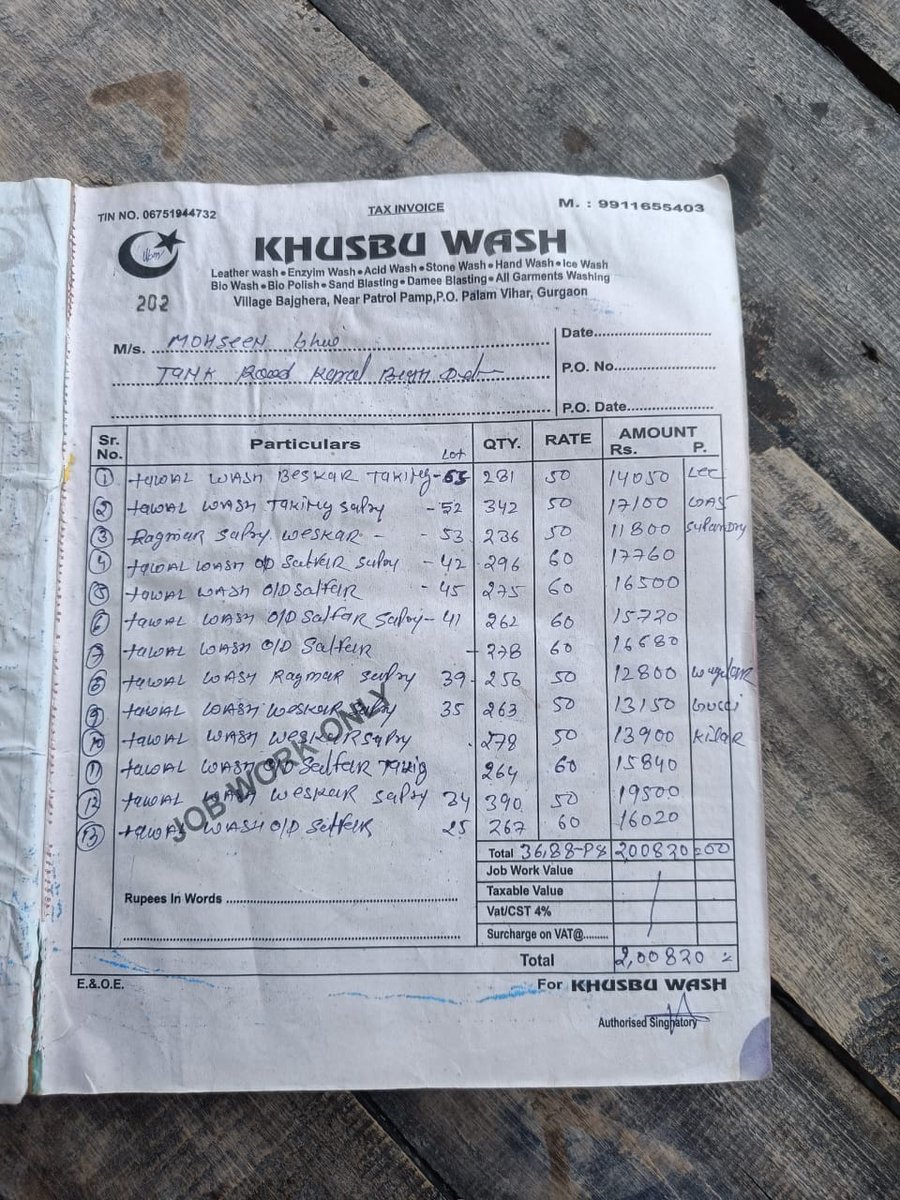 TIN NO. 06751944732
TAX INVOICE
M. : 9911655403
KHUSBU WASH
Leather wash • Enzyim Wash • Acid Wash • Stone Wash • Hand Wash • Ice Wash
Bio Wash • Bio Polish • Sand Blasting • Damee Blasting • All Garments Washing
Village Bajghera, Near Patrol Pamp,P.O. Palam Vihar, Gurgaon
202
M/s. MOHSEEN bhai
TANK Road
Date
P.O. No.
P.O. Date
Sr. No. Particulars Lot QTY. RATE AMOUNT Rs. P.
1 tawAL WASH BESKAR TAKING - 281 50 14050 Lee
2 tawAL WASH TAKING Sabry - 52 342 50 17100
3 Ragmar Sabry WESKAR - - 53 236 50 11800
4 tawAL WASH O/D Salfair Sabry - 42 296 60 17760
5 tawAL WASH O/D Salfair - 45 275 60 16500
6 tawAL WASH O/D Salfar Sabry - 41 262 60 15720
7 tawAL WASH O/D Salfair - 278 60 16680
8 tawAL WASH Ragmar Sabry 39 - 256 50 12800
9 tawAL WASH WESKAR Sabry 35 263 50 13150 Gucci
10 tawAL WASH WESKAR Sabry 278 50 13900 Kilar
11 tawAL WASH O/D Salfair Taking 264 60 15840
12 tawAL WASH WESKAR Sabry 34 390 50 19500
13 tawAL WASH O/D Salfair 25 267 60 16020
JOB WORK ONLY
Total 36,88-PS 200820=00
Job Work Value
Taxable Value
Rupees In Words
Vat/CST 4%
Surcharge on VAT@
Total 2,00820=
E.&O.E.
For KHUSBU WASH
Authorised Singhatory